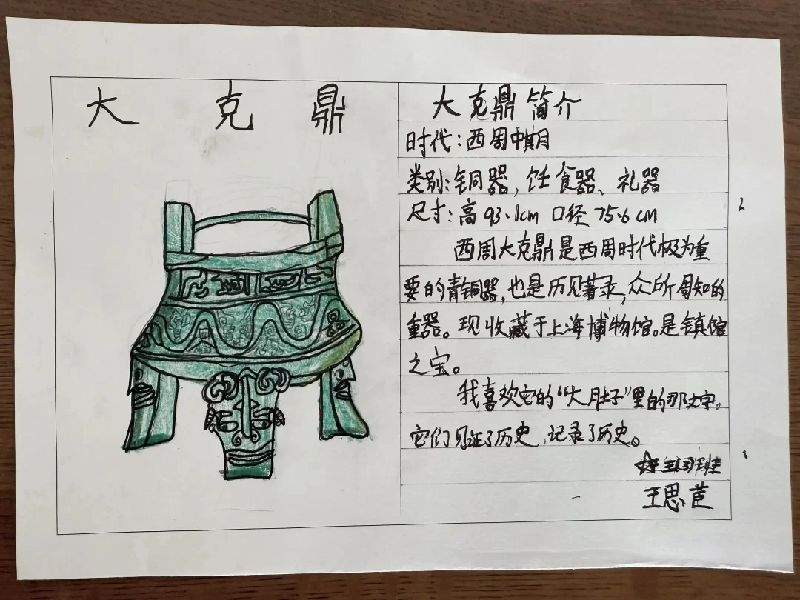 大克鼎
大克鼎简介
时代：西周中期
类别：铜器，饪食器、礼器
尺寸：高93.1cm 口径75.6cm
西周大克鼎是西周时代极为重
要的青铜器，也是历见著录，众所周知的
重器。现收藏于上海博物馆。是镇馆
之宝。
我喜欢它的“大肚子”里的那些字。
它们见证了历史，记录了历史。
班
王思苣